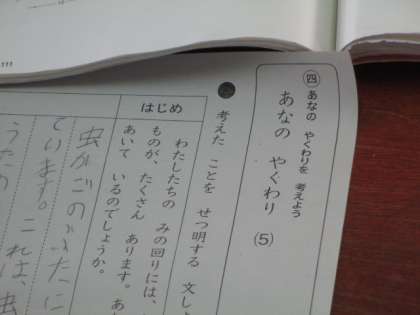 ㊃ あなの やくわりを 考えよう
あなの やくわり (5)
考えた ことを せつ明する 文し
はじめ
わたしたちの みの回りには、
ものが、たくさん あります。あ
あいて いるのでしょうか。
虫かごのふたに
ています。これは、虫
うたの
111